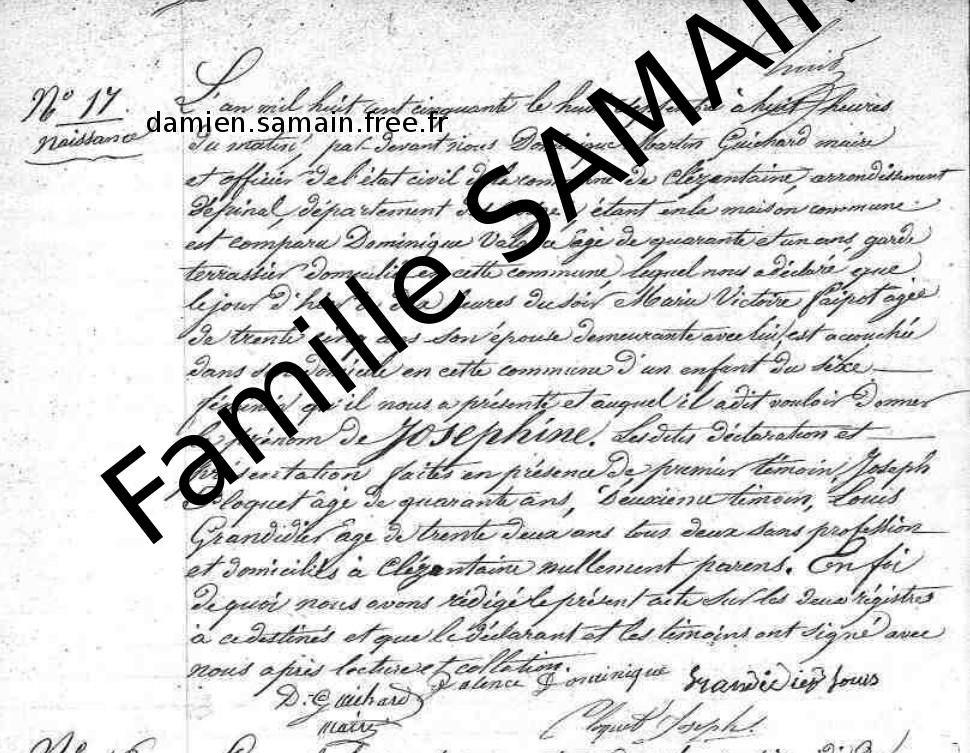 N° 17
naissance
L'an mil huit cent cinquante le huit à huit heures
damien.samain.free.fr
Famille SAMAIN
du matin par devant nous Dominique Martin Guichard maire
et officier de l'état civil de la commune de Clézentaine, arrondissement
d'épinal, département des étant en la maison commune
est comparu Dominique agé de quarante et un ans, garde
terrassier domicilié en cette commune, lequel nous a déclaré que
le jour d'hier à heures du soir Marie Victoire faipot agée
de trente ans son épouse demeurante avec lui, est accouchée
dans son domicile en cette commune d'un enfant du sèxe
féminin qu'il nous a présenté et auquel il a dit vouloir donner
le prénom de Joséphine. Les dites déclaration et
présentation faites en présence de premier témoin, Joseph
Cloquet agé de quarante ans, Deuxième témoin, Louis
Grandidier agé de trente deux ans tous deux sans profession
et domiciliés à Clézentaine nullement parens. En foi
de quoi nous avons rédigé le présent acte sur les deux régistres
à ce destinés et que le déclarant et les témoins ont signé avec
nous après lecture et collation.
D. Guichard Valence Dominique Grandidier Louis
maire Cloquet Joseph.